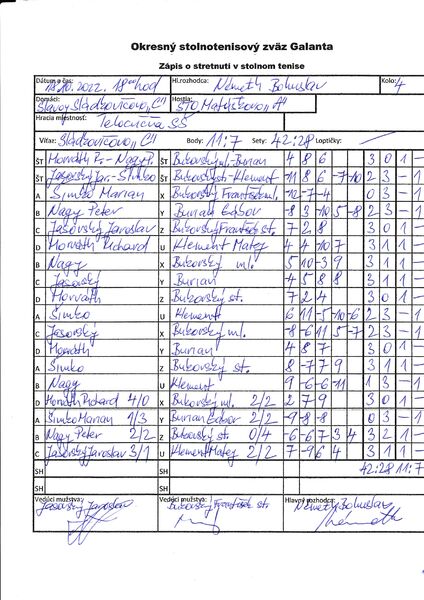 Okresný stolnotenisový zväz Galanta
Zápis o stretnutí v stolnom tenise
Dátum a čas: 18.10.2022. 18 00 hod Hl.rozhodca: Németh Bohuslav Kolo: 4
Domáci: Slávoj Sládkovičovo „C“ Hostia: STO Matúškovo „A“
Hracia miestnosť: Telocvičňa SŠ
Víťaz: Sládkovičovo „C“ Body: 11:7 Sety: 42:28 Loptičky:
ŠT Horváth R.-Nagy P. ŠT Bukovský ml.-Burian 4 8 6 3 0 1 -
ŠT Jasovský Jar.-Šimko ŠT Bukovský st.-Klement -11 8 6 -7 -10 2 3 - 1
A Šimko Marian X Bukovský František ml. -10 -7 -4 0 3 - 1
B Nagy Peter Y Burian Gábor -8 3 -10 5 -8 2 3 - 1
C Jasovský Jaroslav Z Bukovský František st. 7 2 8 3 0 1 -
D Horváth Richard U Klement Matej 4 4 -10 7 3 1 1 -
B Nagy X Bukovský ml. 5 10 -3 9 3 1 1 -
C Jasovský Y Burian -4 5 8 8 3 1 1 -
D Horváth Z Bukovský st. 7 2 4 3 0 1 -
A Šimko U Klement 6 11 -5 -10 -6 2 3 - 1
C Jasovský X Bukovský ml. -8 -6 11 5 -7 2 3 - 1
D Horváth Y Burian 4 8 7 3 0 1 -
A Šimko Z Bukovský st. 8 -7 7 9 3 1 1 -
B Nagy U Klement 9 -6 -6 -11 1 3 - 1
D Horváth Richard 4/0 X Bukovský ml. 2/2 2 7 9 3 0 1 -
A Šimko Marian 1/3 Y Burian Gábor 2/2 -9 -8 -8 0 3 - 1
B Nagy Peter 2/2 Z Bukovský st. 0/4 -6 -6 7 3 4 3 2 1 -
C Jasovský Jaroslav 3/1 U Klement Matej 2/2 7 -9 6 4 3 1 1 -
SH SH 42:28 11:7
SH SH
Vedúci mužstva: Vedúci mužstva: Hlavný rozhodca:
Jasovský Jaroslav Bukovský František st. Németh Bohuslav
Németh